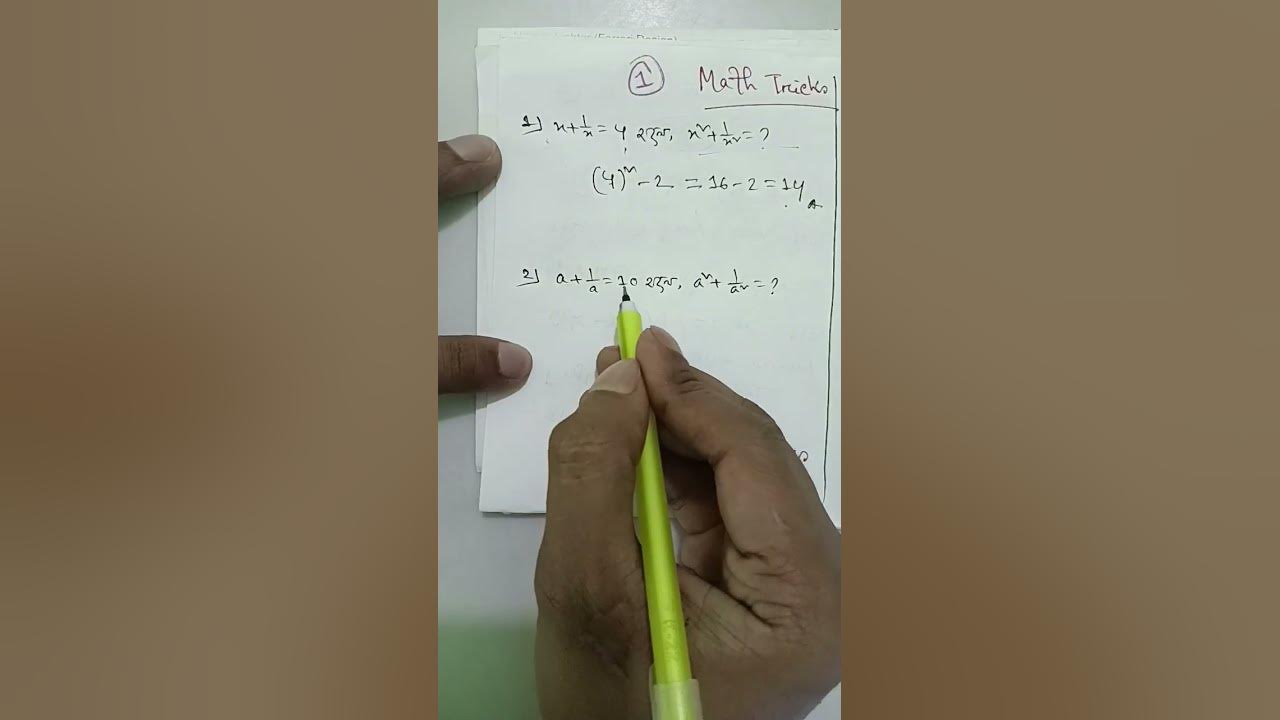 ① Math Tricks
1) x + 1/x = 4 হলে, x² + 1/x² = ?
(4)² - 2 = 16 - 2 = 14
2) a + 1/a = 10 হলে, a² + 1/a² = ?